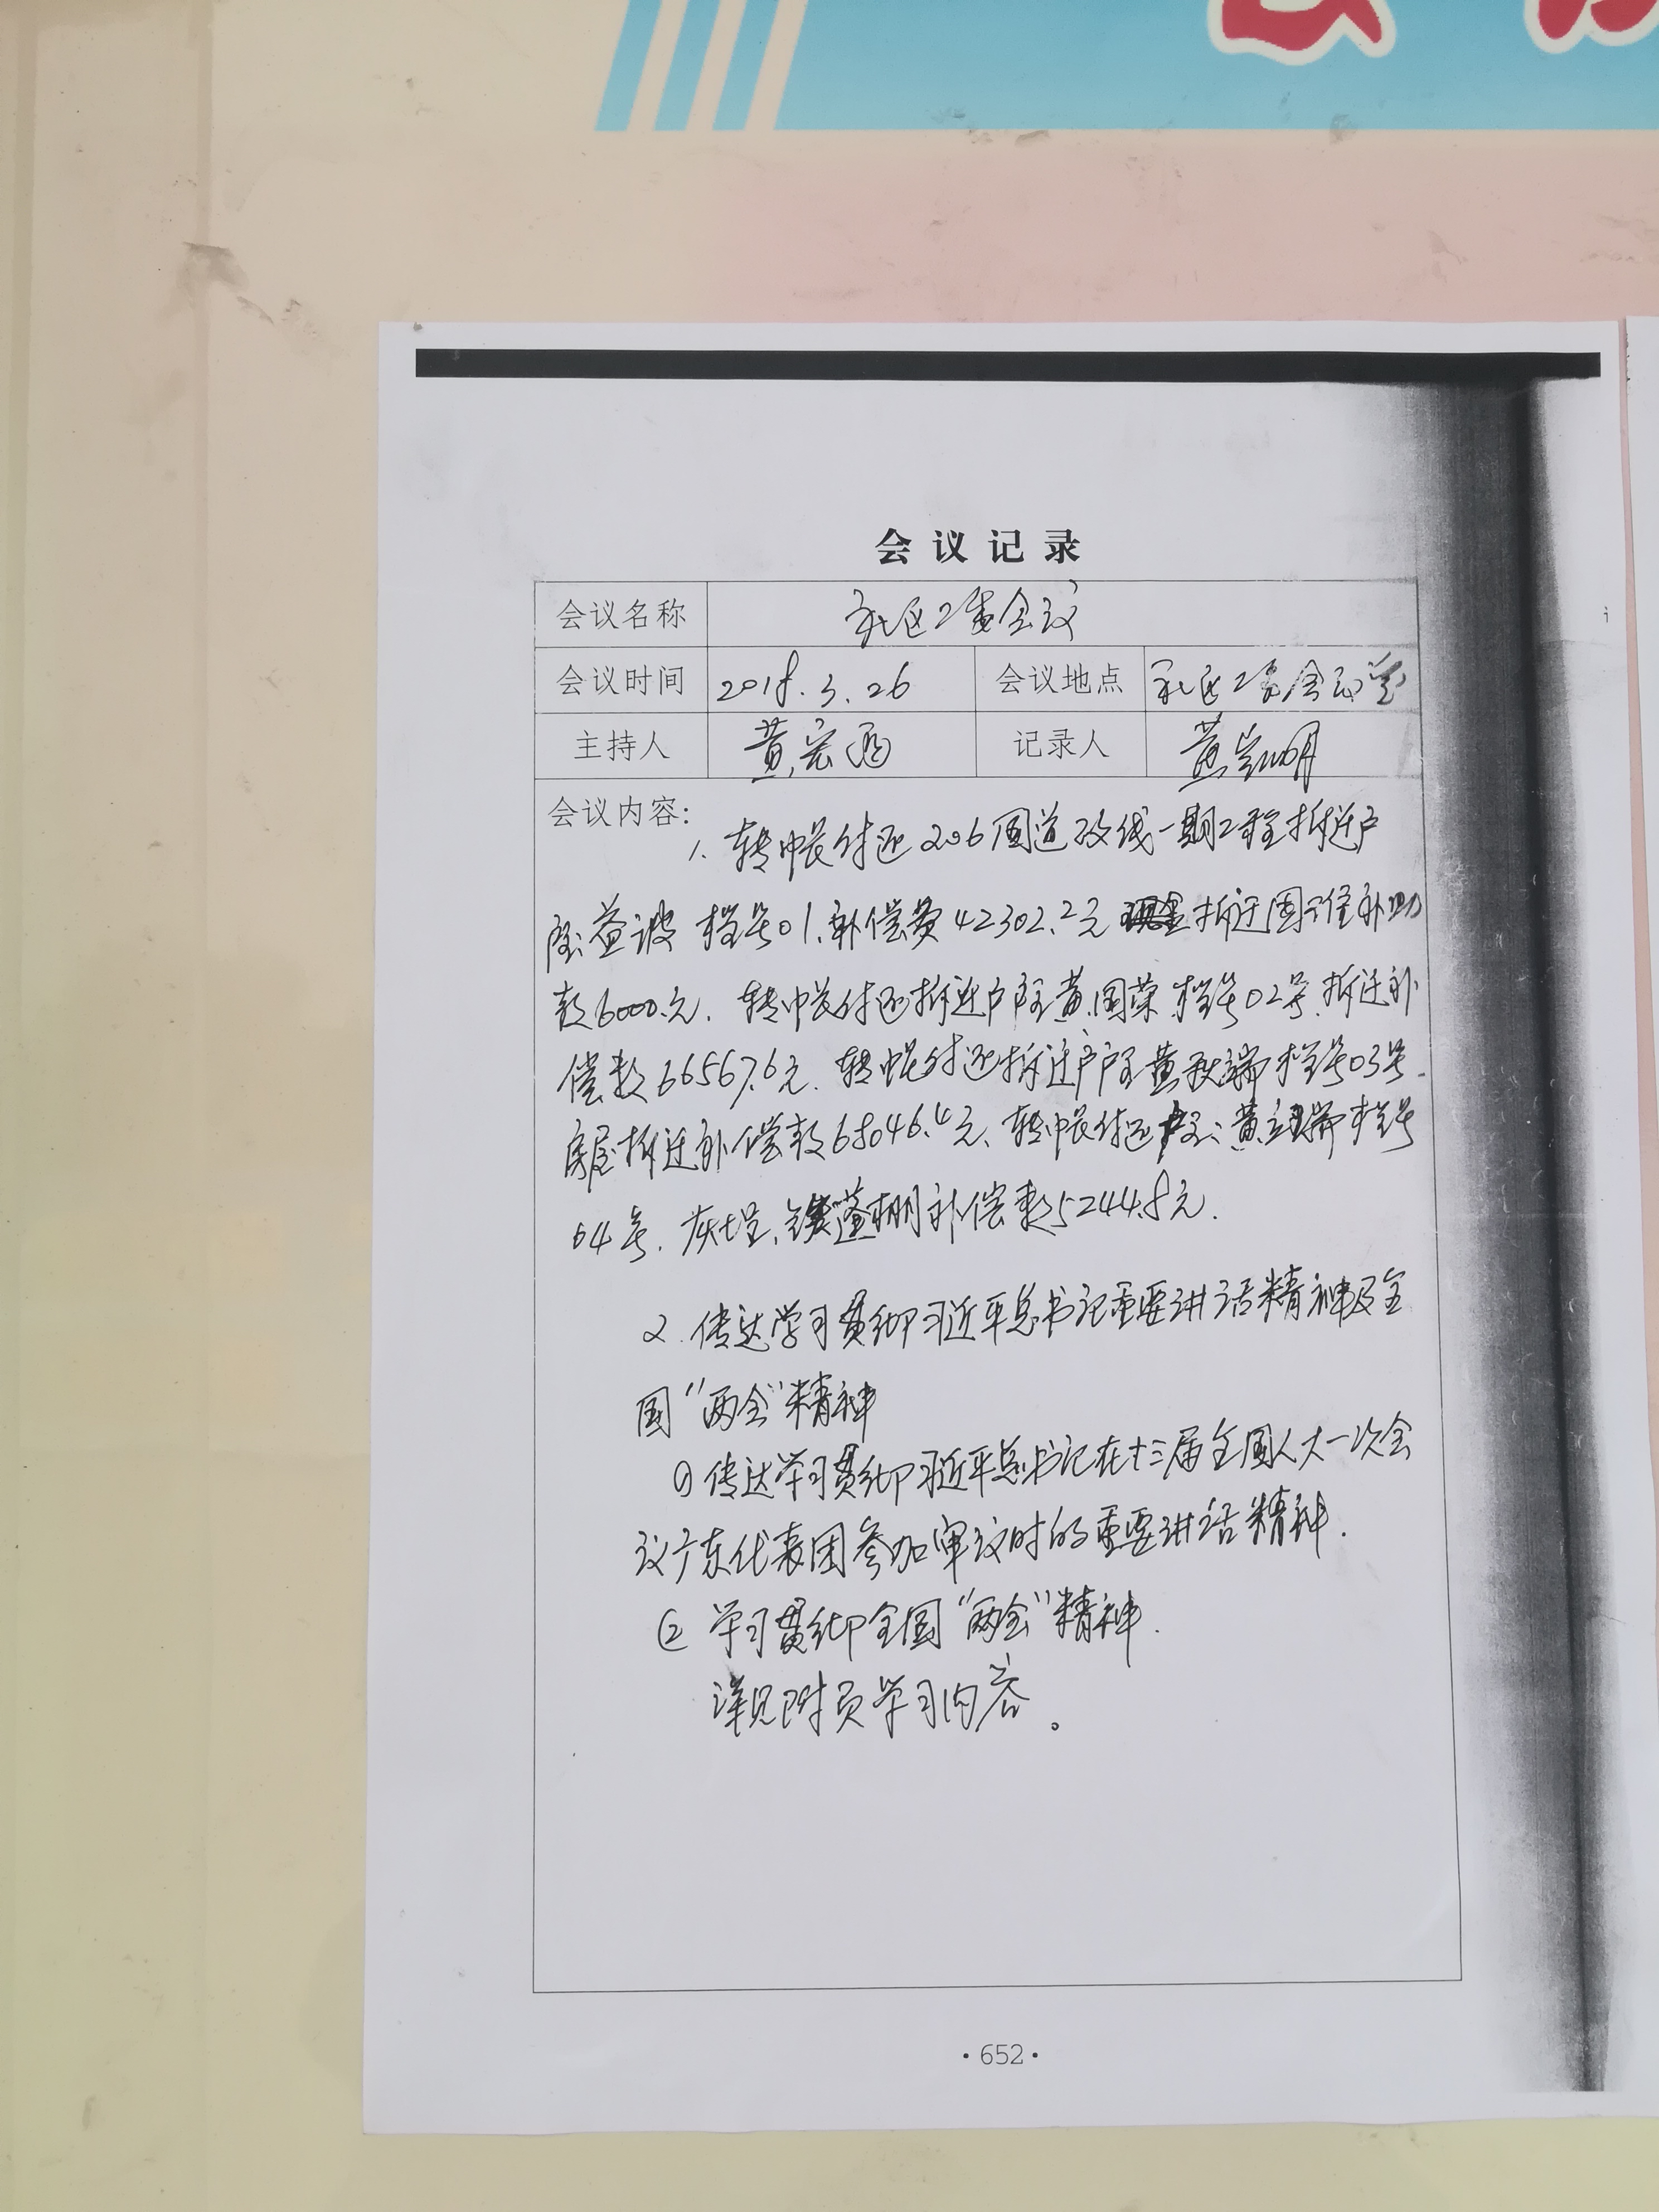 会议记录
会议名称 社区二委会议
会议时间 2018.3.26 会议地点 社区二委会
主持人 黄宏 记录人 黄 明
会议内容:
1. 转帐付还206国道改线一期工程拆迁户
益波 档号01.补偿费42302.2元 拆迁 补助
款6000.元. 转帐付还拆迁户户主黄国荣.档号02号.拆迁补
偿款66567.6元. 转帐付还拆迁户户主黄 端档号03号.
房屋拆迁补偿款68046.4元、转帐付还户主:黄 端档号
04号. 灰埕、铁蓬棚补偿款5244.8元.
2. 传达学习贯彻习近平总书记重要讲话精神及全
国“两会”精神
① 传达学习贯彻习近平总书记在十三届全国人大一次会
议广东代表团参加审议时的重要讲话精神.
② 学习贯彻全国“两会”精神.
详见附页学习内容。
·652·